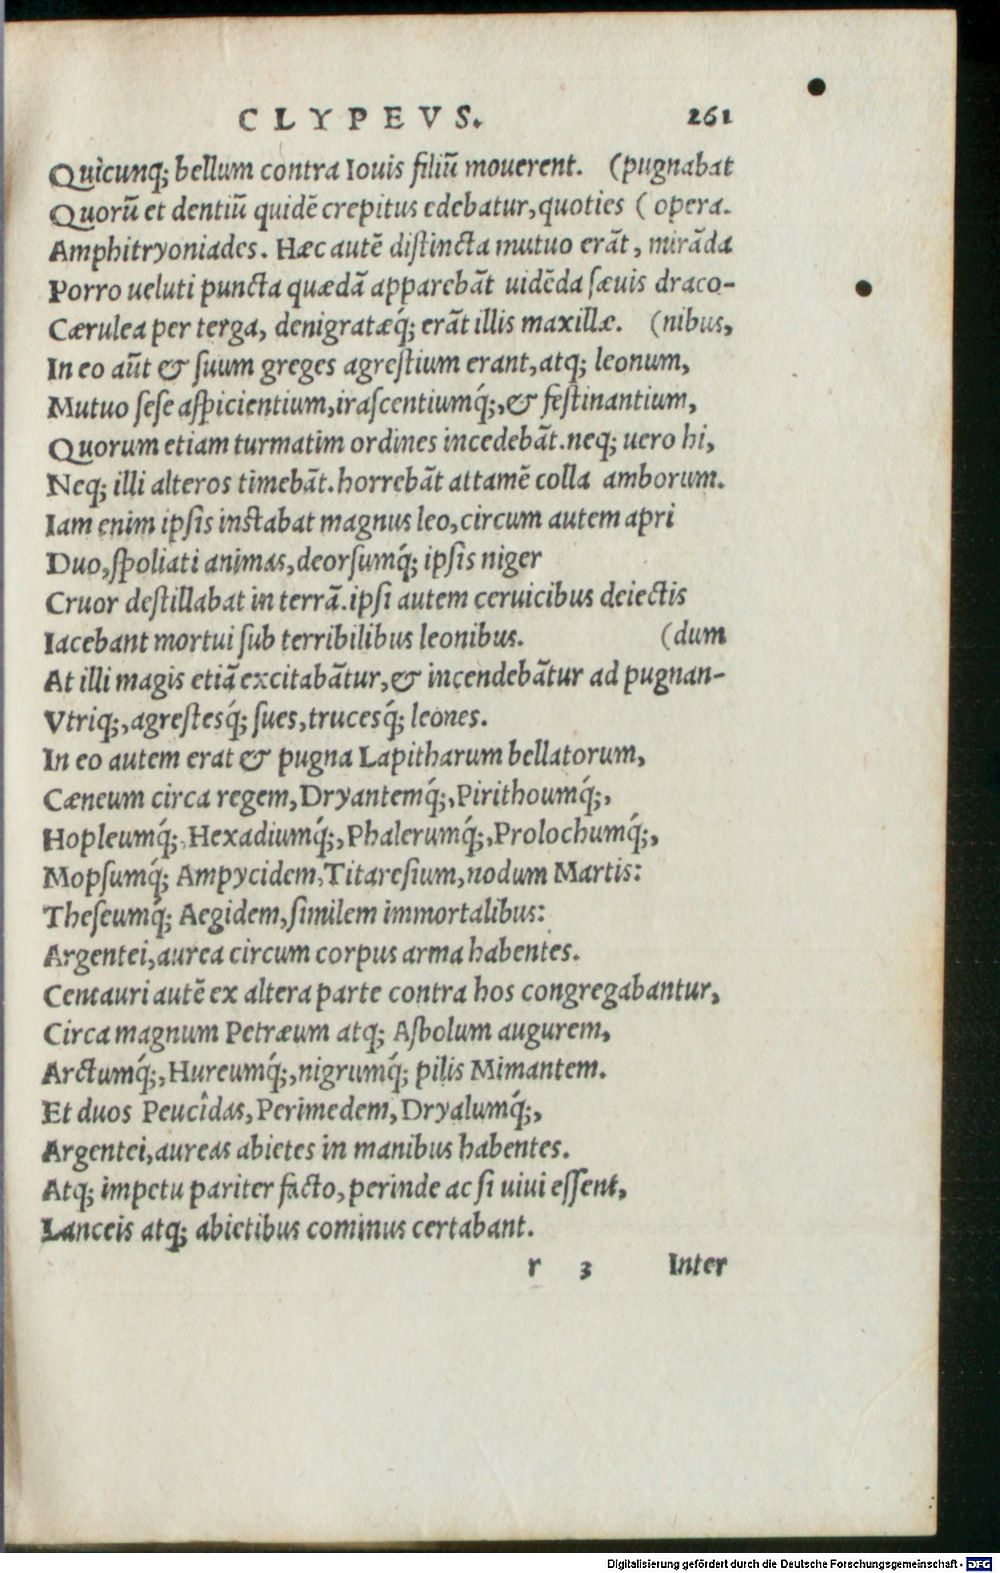 CLYPEVS. 261
Quicunq; bellum contra Iouis filiũ mouerent. (pugnabat
Quorũ et dentiũ quidẽ crepitus edebatur, quoties ( opera.
Amphitryoniades. Hæc autẽ distincta mutuo erãt, mirãda
Porro ueluti puncta quædã apparebãt uidẽda sæuis draco-
Cærulea per terga, denigratæq́; erãt illis maxillæ. (nibus,
In eo aũt & suum greges agrestium erant, atq; leonum,
Mutuo sese aspicientium, irascentiumq́;, & festinantium,
Quorum etiam turmatim ordines incedebãt. neq; uero hi,
Neq; illi alteros timebãt. horrebãt attamẽ colla amborum.
Iam enim ipsis instabat magnus leo, circum autem apri
Duo, spoliati animas, deorsumq́; ipsis niger
Cruor destillabat in terrã. ipsi autem ceruicibus deiectis
Iacebant mortui sub terribilibus leonibus. (dum
At illi magis etiã excitabãtur, & incendebãtur ad pugnan-
Vtriq;, agrestesq́; sues, trucesq́; leones.
In eo autem erat & pugna Lapitharum bellatorum,
Cæneum circa regem, Dryantemq́;, Pirithoumq́;,
Hopleumq́;, Hexadiumq́;, Phalerumq́;, Prolochumq́;,
Mopsumq́; Ampycidem, Titaresium, nodum Martis:
Theseumq́; Aegidem, similem immortalibus:
Argentei, aurea circum corpus arma habentes.
Centauri autẽ ex altera parte contra hos congregabantur,
Circa magnum Petræum atq; Asbolum augurem,
Arctumq́;, Hureumq́;, nigrumq́; pilis Mimantem.
Et duos Peucîdas, Perimedem, Dryalumq́;,
Argentei, aureas abietes in manibus habentes.
Atq; impetu pariter facto, perinde ac si uiui essent,
Lanceis atq; abietibus cominus certabant.
r 3 Inter
Digitalisierung gefördert durch die Deutsche Forschungsgemeinschaft - DFG